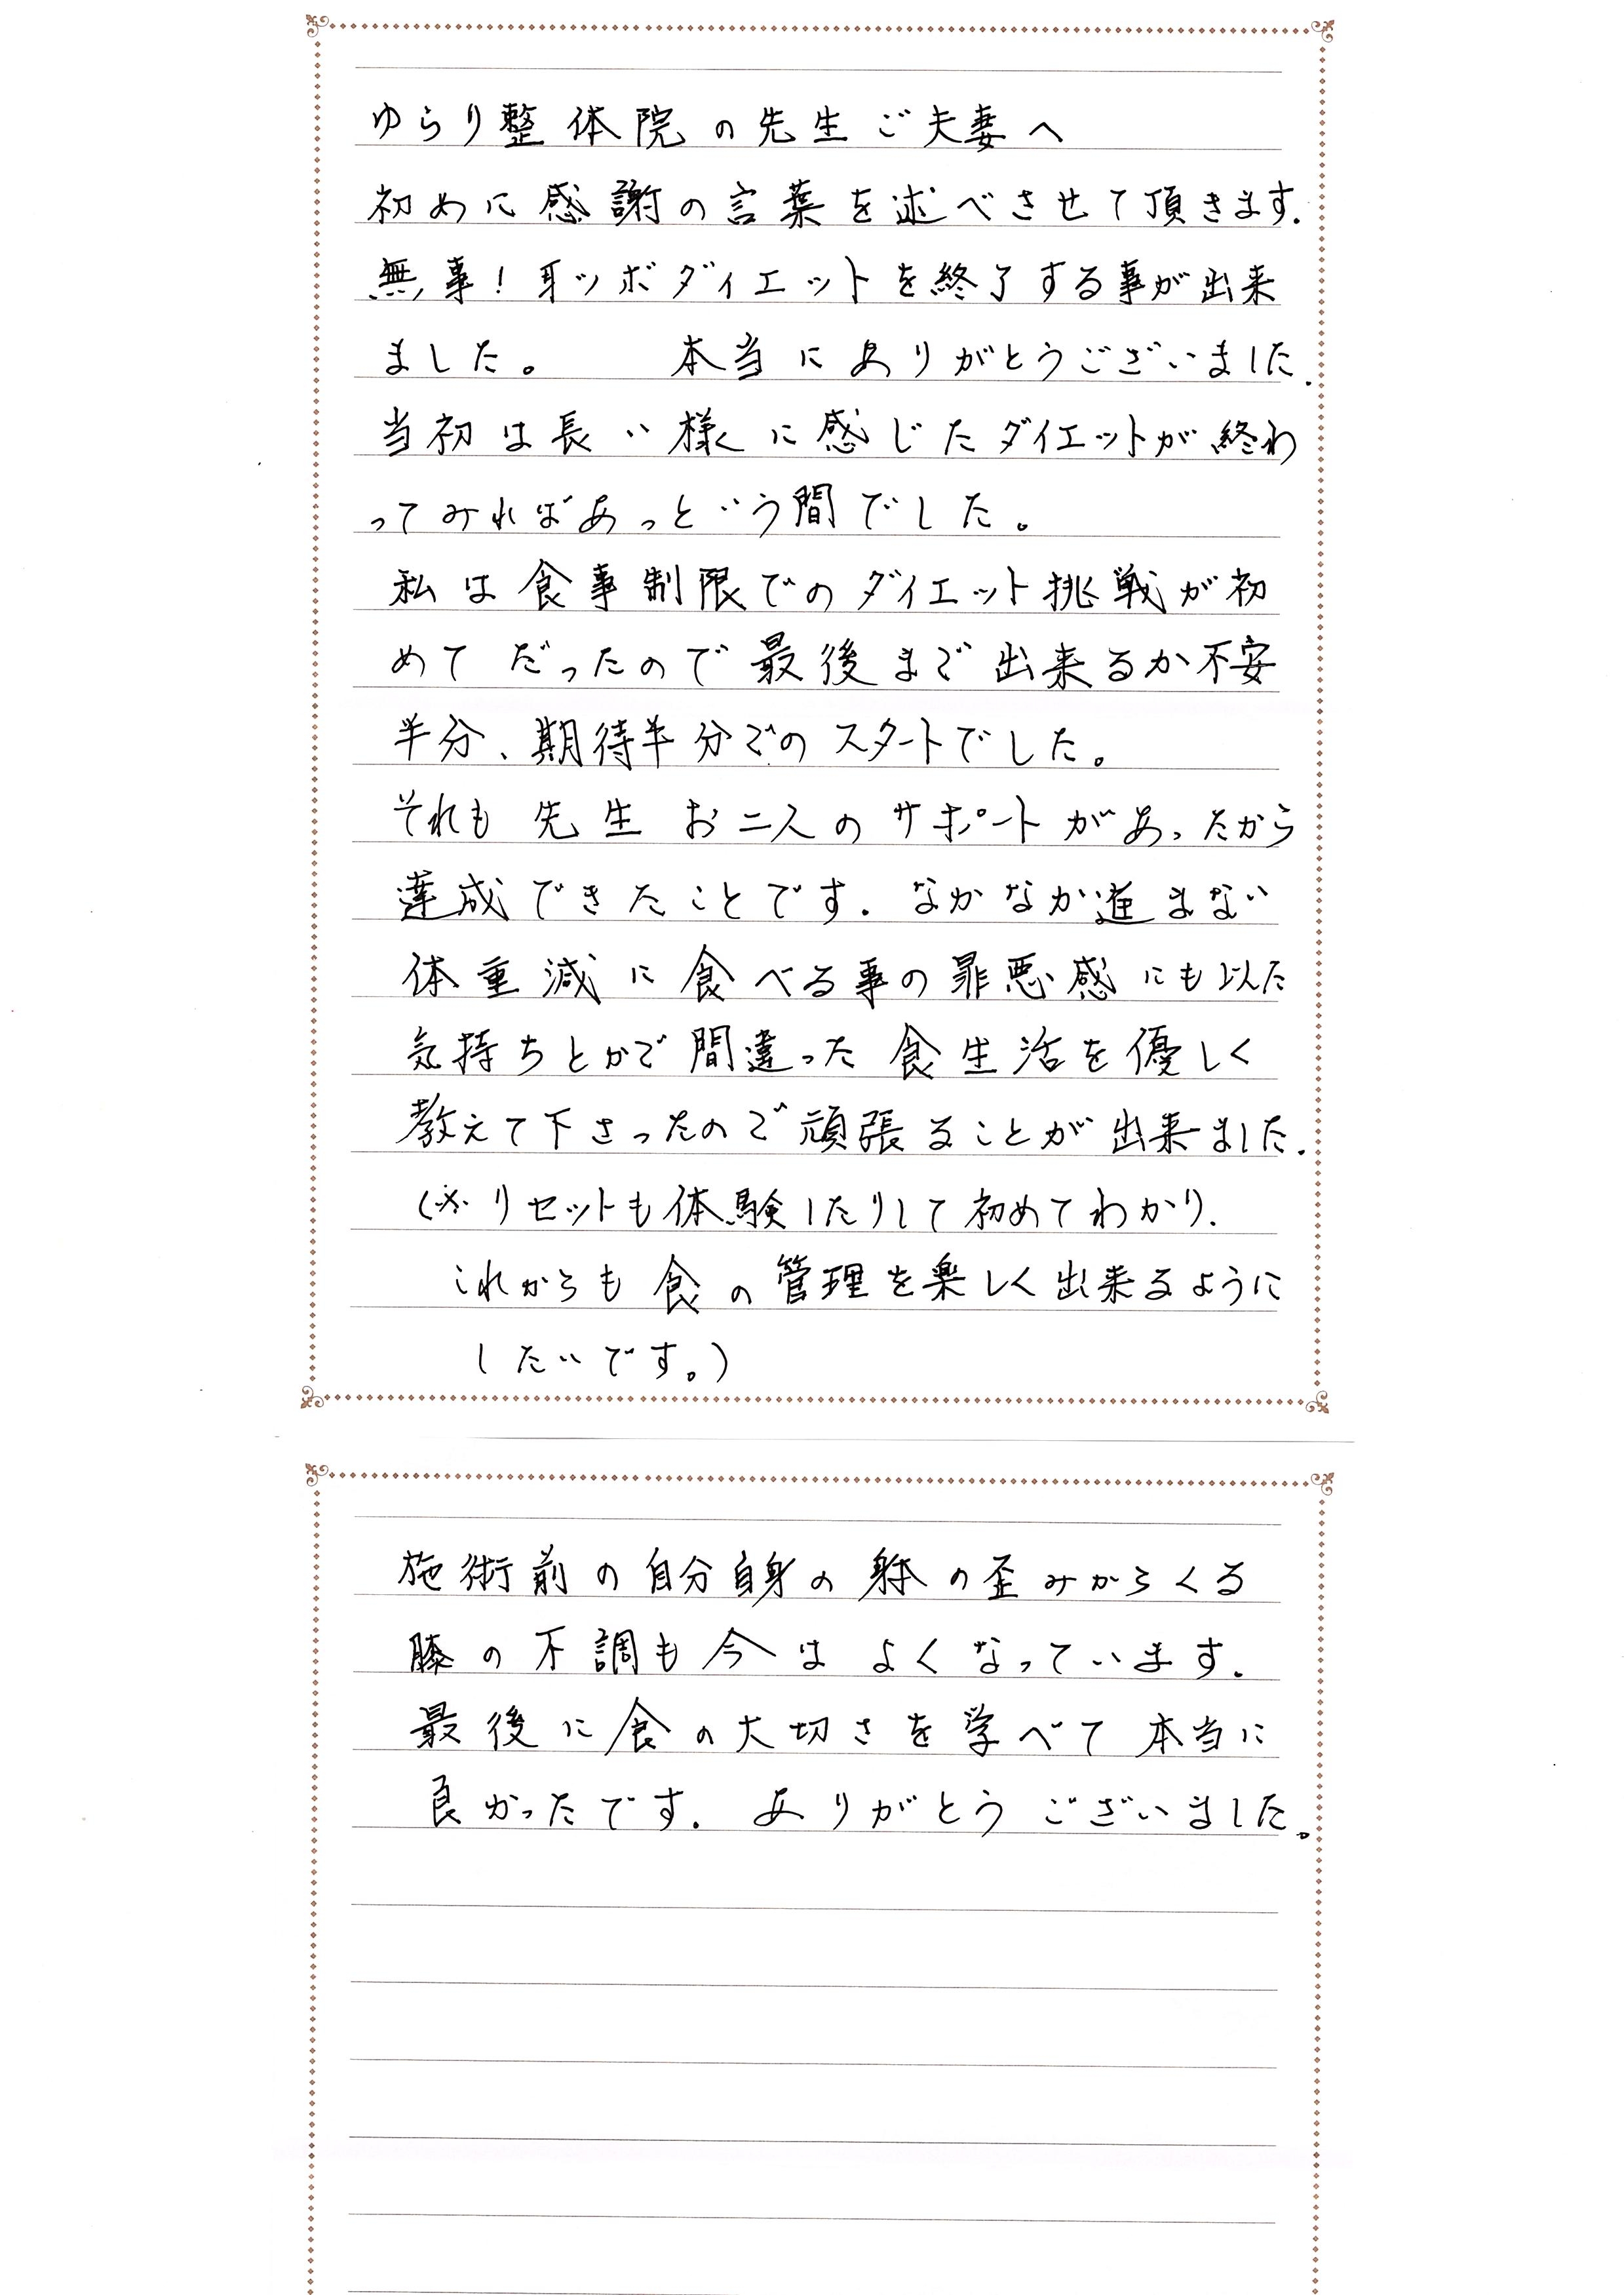 ゆらり整体院の先生ご夫妻へ
初めに感謝の言葉を述べさせて頂きます.
無事!耳ツボダイエットを終了する事が出来
ました。 本当にありがとうございました.
当初は長い様に感じたダイエットが終わ
ってみればあっという間でした。
私は食事制限でのダイエット挑戦が初
めてだったので最後まで出来るか不安
半分、期待半分でのスタートでした。
それも先生お二人のサポートがあったから
達成できたことです.なかなか進まない
体重減に食べる事の罪悪感にも似た
気持ちとかで間違った食生活を優しく
教えて下さったので頑張ることが出来ました.
(※リセットも体験したりして初めてわかり.
これからも食の管理を楽しく出来るように
したいです。)
施術前の自分自身の躰の歪みからくる
膝の不調も今はよくなっています.
最後に食の大切さを学べて本当に
良かったです.ありがとうございました。